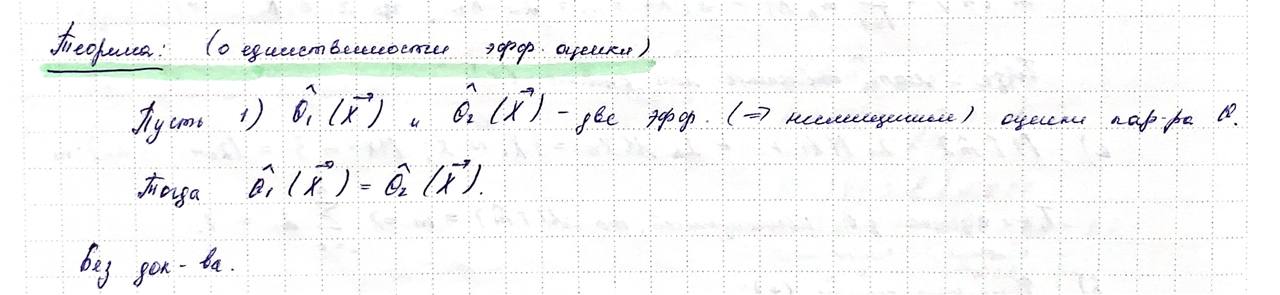 Теорема: (о единственности эфф. оценки)
Пусть 1) θ̂₁(X⃗) и θ̂₂(X⃗) – две эфф. (=> несмещённые) оценки пар-ра θ.
Тогда θ̂₁(X⃗) = θ̂₂(X⃗).
Без док-ва.